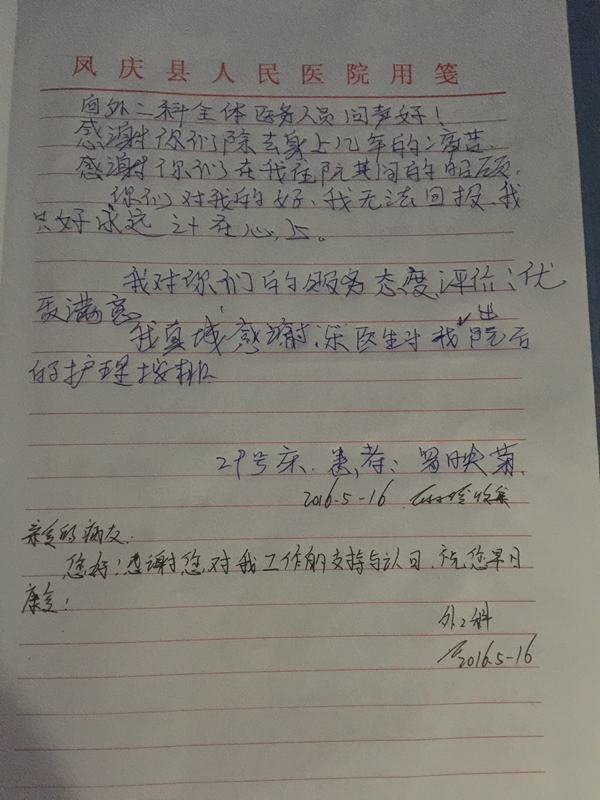 凤庆县人民医院用笺
向外二科全体医务人员问声好!
感谢你们除去身上几年的痛苦.
感谢你们在我住院其间的照顾.
你们对我的好、我无法回报、我
只好永远记在心上。
我对你们的服务态度评价:优
质满意
我真诚感谢:乐医生对我出院后
的护理按排
29号床、患者:罗映菊
2016.5-16
亲爱的病友:
您好!感谢您对我工作的支持与认同.祝您早日
康复!
外2科
2016.5-16